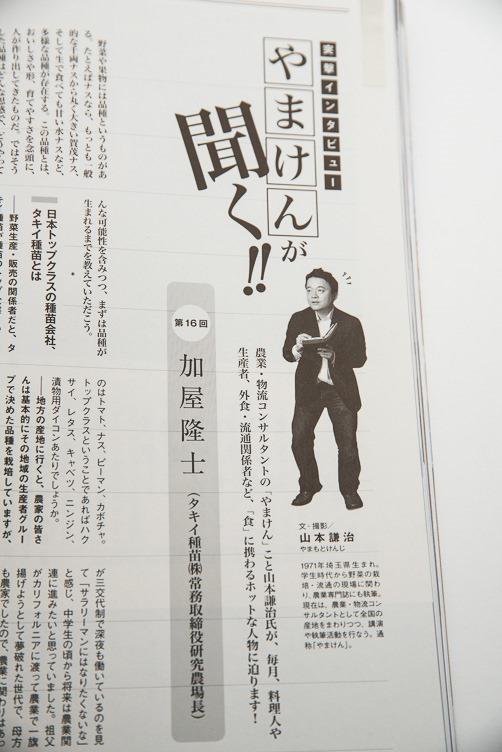 突撃インタビュー
やまけんが
聞く!!
農業・物流コンサルタントの「やまけん」こと山本謙治氏が、毎月、料理人や
生産者、外食・流通関係者など、「食」に携わるホットな人物に迫ります!
第16回
加屋隆士
(タキイ種苗㈱常務取締役研究農場長)
文・撮影/
山本謙治
やまもとけんじ
1971年埼玉県生まれ。
学生時代から野菜の栽
培・流通の現場に関わ
り、農業専門誌にも執筆。
現在は、農業・物流コン
サルタントとして全国の
産地をまわりつつ、講演
や執筆活動を行なう。通
称「やまけん」。
野菜や果物には品種というものがあ
る。たとえばナスなら、もっとも一般
的な千両ナスから丸く大きい賀茂ナス、
そして生で食べても甘い水ナスなど、
多様な品種が存在する。この品種とは、
おいしさや形、育てやすさを念頭に、
人が作り出してきたものだ。ではそう
んな可能性を含みつつ、まずは品種が
生まれるまでを教えていただこう。
*
日本トップクラスの種苗会社、
タキイ種苗とは
──野菜生産・販売の関係者だと、タ
のはトマト、ナス、ピーマン、カボチャ。
トップクラスということであればハク
サイ、レタス、キャベツ、ニンジン、
漬物用ダイコンあたりでしょうか。
──地方の産地に行くと、農家の皆さ
んは基本的にその地域の生産者グルー
プで決めた品種を栽培していますが、
が三交代制で深夜も働いているのを見
て「サラリーマンにはなりたくないな」
と感じ、中学生の頃から将来は農業関
連に進みたいと思っていました。祖父
がカリフォルニアに渡って農業で一旗
揚げようとして夢破れた世代で、母方
も農家でしたので、農業に関わりはあっ